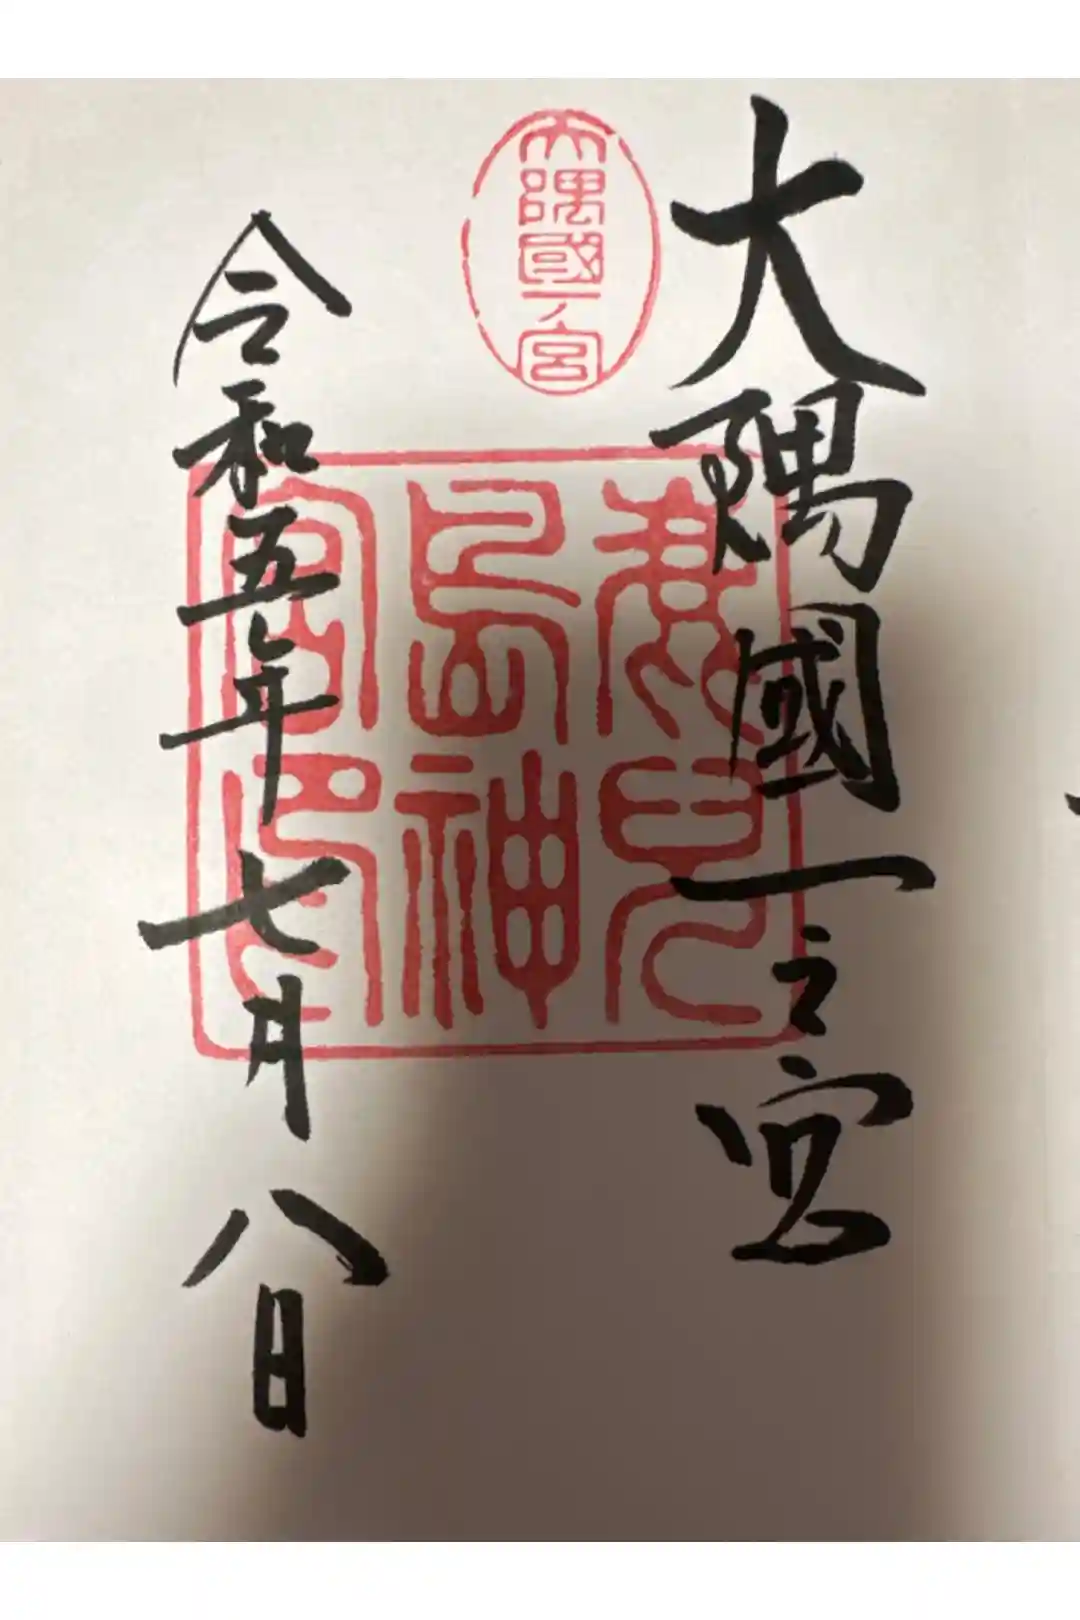 大隅國一之宮
大隅國一ノ宮
鹿兒
島神
宮印
令和五年七月八日